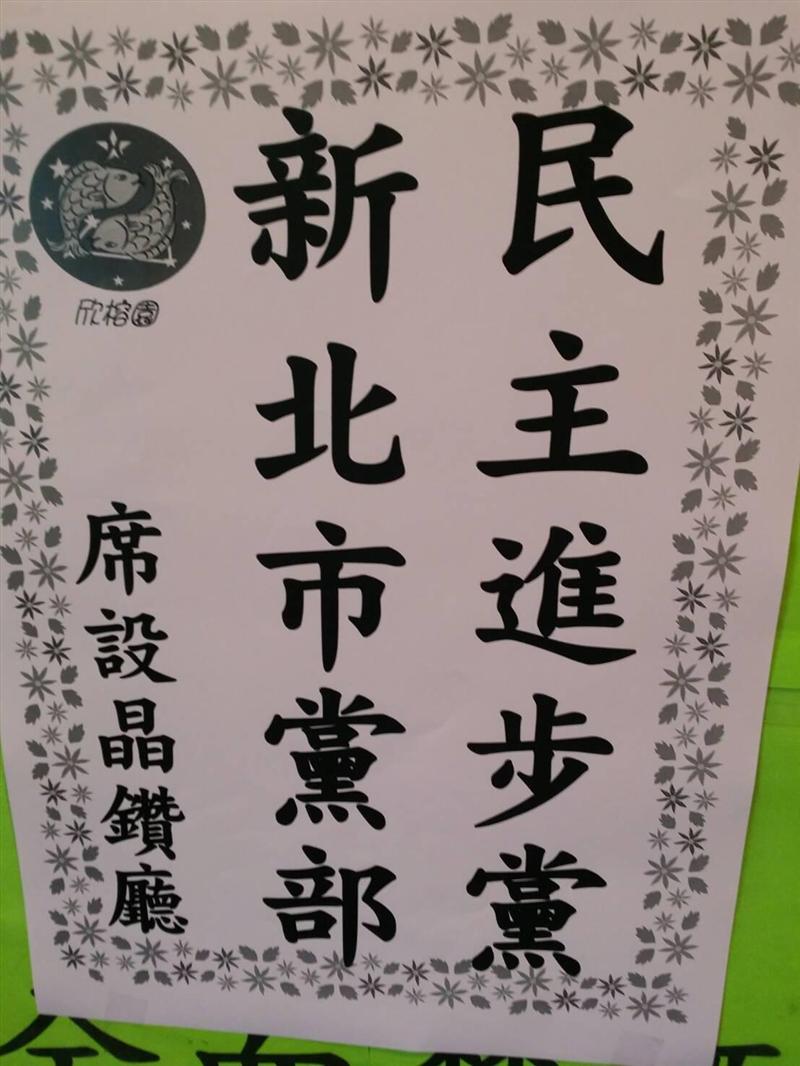 民主進步黨
新北市黨部
欣榕園
席設晶鑽廳